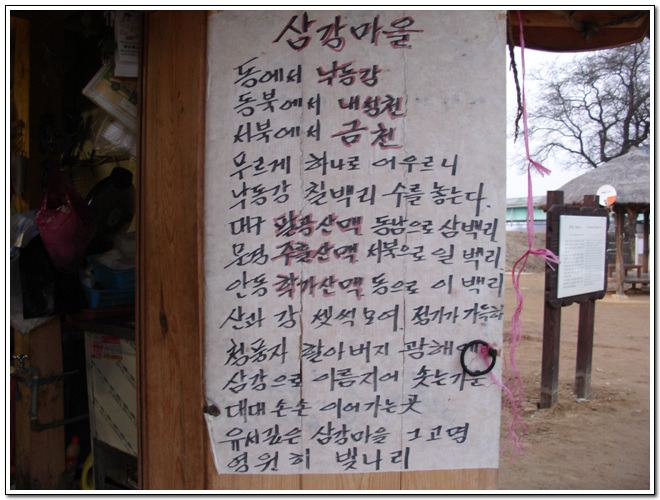 삼강마을
동에서 낙동강
동북에서 내성천
서북에서 금천
무르게 하나로 어우르니
낙동강 칠백리 수를 놓는다.
대구 팔공산맥 동남으로 삼백리
문경 주흘산맥 서북으로 일 백리
안동 학가산맥 동으로 이 백리
산과 강 셋씩 모여 정기가 가득하
청풍자 할아버지 광해
삼강으로 이름지어
대대 손손 이어가는 곳
유서깊은 삼강마을 그 고명
영원히 빛나리